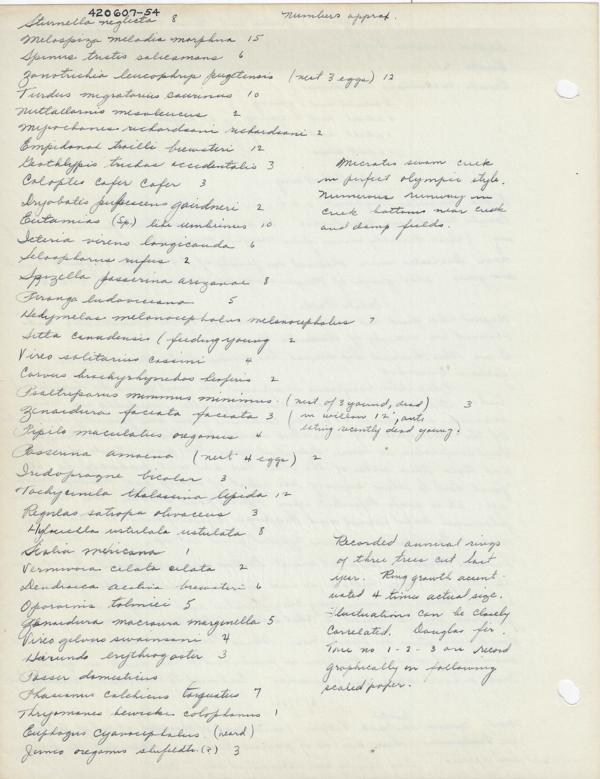 420607-54
Sturnella neglecta 8
Numbers approx.
Melospiza melodia morphna 15
Spinus tristis salicamans 6
Zonotrichia leucophrys pugetensis (nest 3 eggs) 12
Turdus migratorius caurinus 10
Nuttallornis mesoleucus 2
Myiochanes richardsoni richardsoni 2
Empidonax trailli brewsteri 12
Geothlypis trichas occidentalis 3
Colaptes cafer cafer 3
Dryobates pubescens gairdneri 2
Eutamias (Sp.) like umbrinus 10
Icteria virens longicauda 6
Selasphorus rufus 2
Spizella passerina arizonae 8
Piranga ludoviciana 5
Hedymelas melanocephalus melanocephalus 7
Sitta canadensis ( feeding young 2
Vireo solitarius cassini 4
Corvus brachyrhynchos hesperis 2
Psaltriparus minimus minimus. (nest of 3 yound, dead) 3
Zenaidura faciata faciata 3 ( in willow 12', ants
Pipilo maculatus oregonus 4 eating recently dead young.
Passerina amoena (nest 4 eggs) 2
Iridoprocne bicolor 3
Tachycineta thalassina lepida 12
Regulus satrapa olivaceus 3
Hylocichla ustulata ustulata 8
Sialia mexicana 1
Vermivora celata celata 2
Dendroica aestiva brewsteri 6
Oporornis tolmiei 5
Zenaidura macroura marginella 5
Vireo gilvus swainsoni 4
Hirundo erythrogaster 3
Passer domesticus
Phasianus colchicus torquatus 7
Thryomanes bewicki calophonus 1
Euphagus cyanocephalus (heard)
Junco oreganus shufeldti (?) 3
Microtis swam creek
in perfect olympic style.
Numerous runways in
creek bottoms near creek
and damp fields.
Recorded annual rings
of three trees cut last
year. Ring growth acent-
uated 4 times actual size.
Fluctuations can be closely
correlated. Douglas fir.
Tree no 1-2-3 are record
graphically on following
scaled paper.